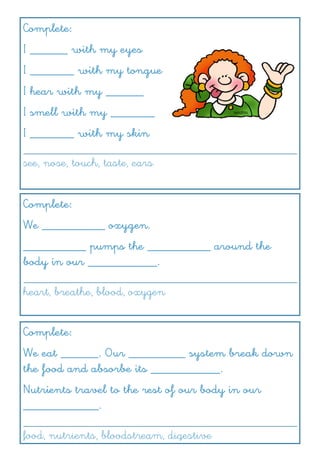 Complete:
I ______ with my eyes
I _______ with my tongue
I hear with my ______
I smell with my _______
I _______ with my skin
see, nose, touch, taste, ears
Complete:
We __________ oxygen.
__________ pumps the __________ around the
body in our ___________.
heart, breathe, blood, oxygen
Complete:
We eat ______. Our _________ system break down
the food and absorbe its ___________.
Nutrients travel to the rest of our body in our
____________.
food, nutrients, bloodstream, digestive